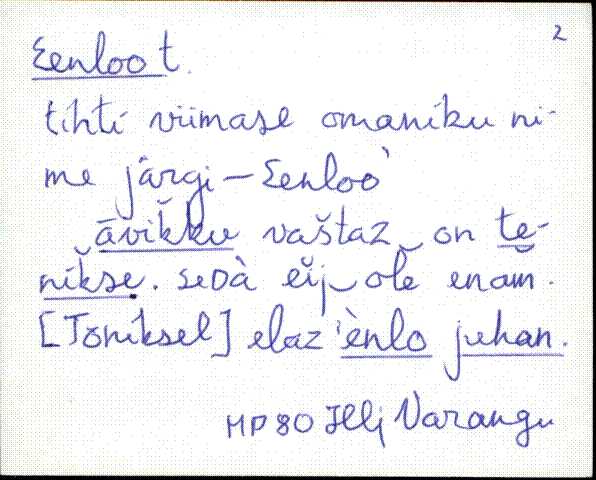 2
Eenloo t.
tihti viimase omaniku ni-
me järgi – Eenloo'
āvikku vaštaz on te-
nikse. seDà eij ole enam.
[Tõniksel] elaz 'ènlo juhan.
MP 80 Illj Varangu